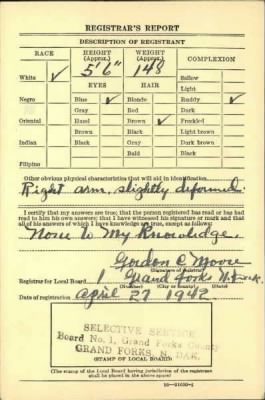 REGISTRAR'S REPORT
DESCRIPTION OF REGISTRANT
RACE HEIGHT (Approx.) WEIGHT (Approx.) COMPLEXION
White ✓ 5'6" 148 Sallow
Light
Negro EYES HAIR Ruddy ✓
Blue ✓ Blonde Dark
Gray Red Freckled
Oriental Hazel Brown ✓ Light brown
Brown Black Dark brown
Indian Black Gray Black
Bald
Filipino
Other obvious physical characteristics that will aid in identification
Right arm, slightly deformed.
I certify that my answers are true; that the person registered has read or has had
read to him his own answers; that I have witnessed his signature or mark and that
all of his answers of which I have knowledge are true, except as follows:
None to My Knowledge.
Gordon C Moore
(Signature of registrar)
Registrar for Local Board 1 Grand Forks N. Dak.
(Number) (City or county) (State)
Date of registration April 27 1942
SELECTIVE SERVICE
Board No. 1, Grand Forks County
GRAND FORKS, N. DAK.
(STAMP OF LOCAL BOARD)
(The stamp of the Local Board having jurisdiction of the registrant
shall be placed in the above space)